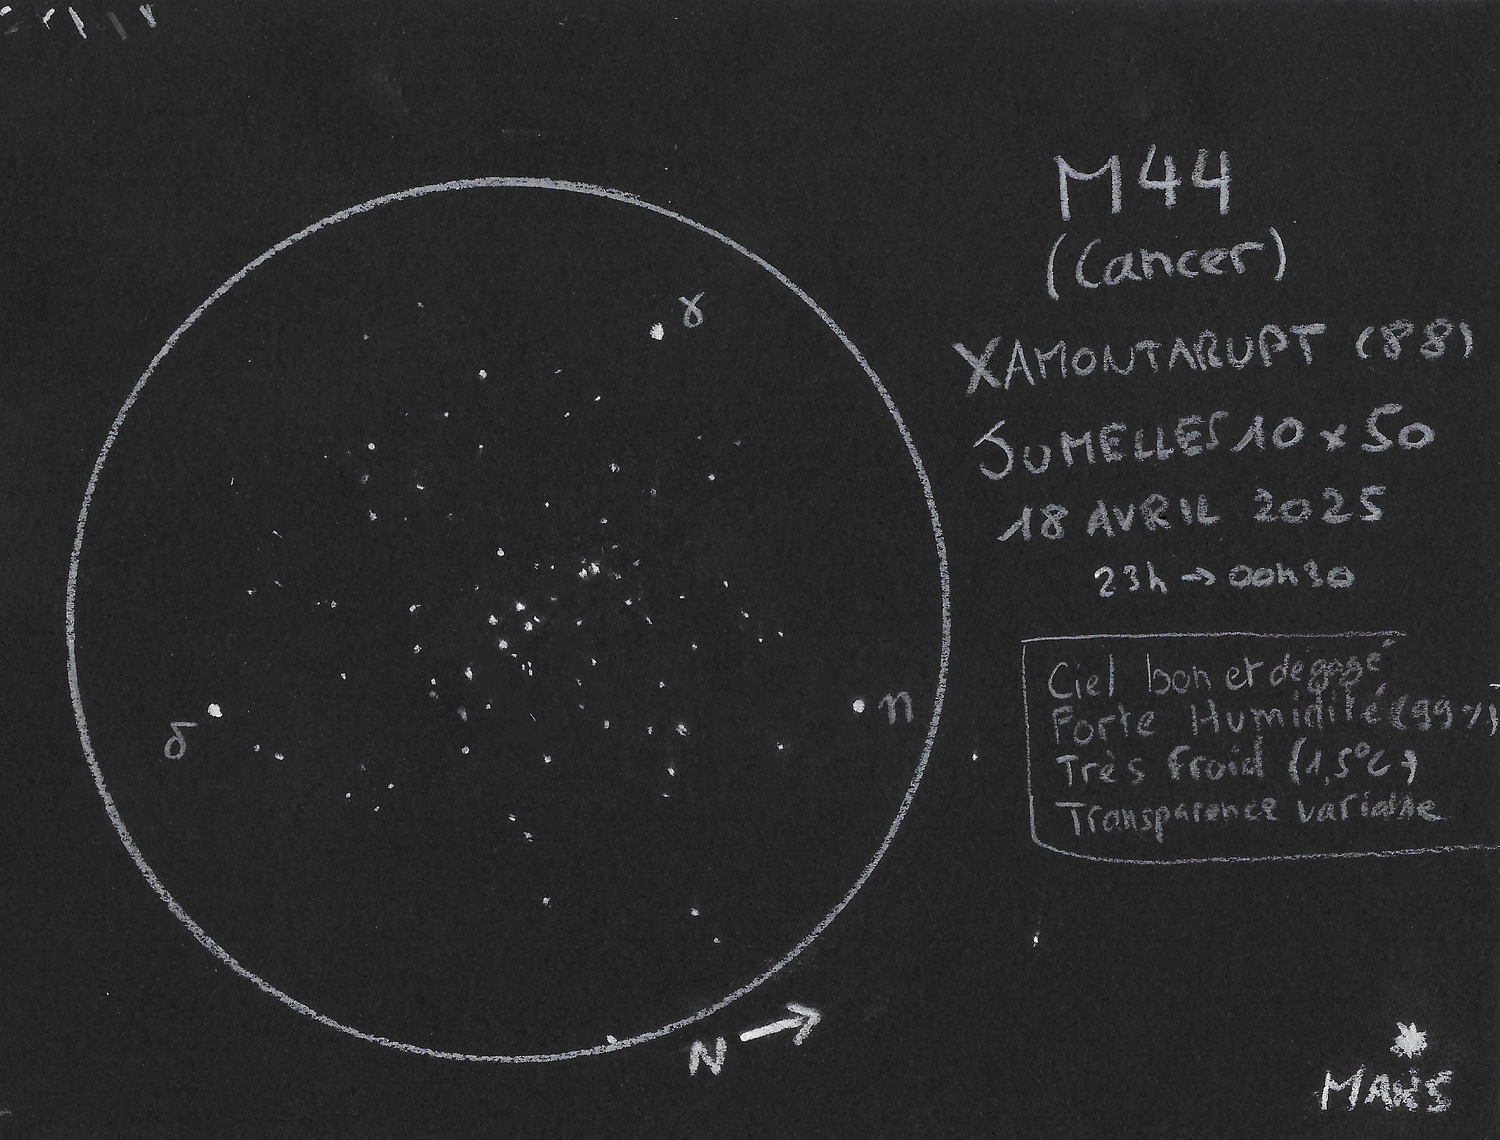 M44
(Cancer)
XAMONTARUPT (88)
JUMELLES 10 x 50
18 AVRIL 2025
23h → 00h30
Ciel bon et dégagé
Forte Humidité (99%)
Très froid (1,5°C)
Transparence variable
γ
δ
η
N
MARS